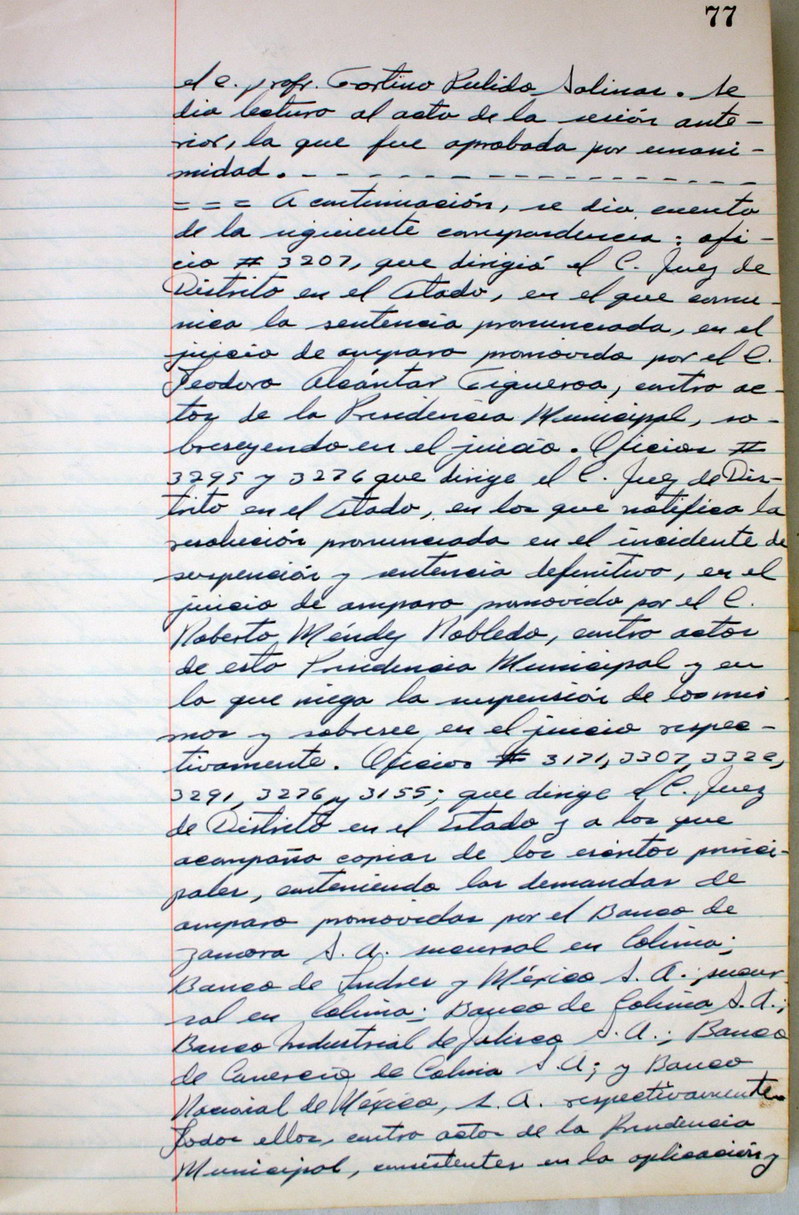 77
el C. profr. Fortino Pulido Salinas. Se
dio lectura al acta de la sesión ante-
rior, la que fue aprobada por unani-
midad. - - - - - - - - - - - - - - - -
= = = A continuación, se dio cuenta
de la siguiente correspondencia: ofi-
cio # 3207, que dirigió el C. Juez de
Distrito en el Estado, en el que comu-
nica la sentencia pronunciada, en el
juicio de amparo promovido por el C.
Teodoro Alcántar Figueroa, contra ac-
tos de la Presidencia Municipal, so-
breseyendo en el juicio. Oficios #
3295 y 3276 que dirige el C. Juez de Dis-
trito en el Estado, en los que notifica la
resolución pronunciada en el incidente de
suspención y sentencia definitiva, en el
juicio de amparo promovido por el C.
Roberto Méndez Robledo, contra actos
de esta Presidencia Municipal y en
la que niega la suspensión de los mis-
mos y sobresee en el juicio respec-
tivamente. Oficios # 3171, 3307, 3322,
3291, 3276 y 3155; que dirige el C. Juez
de Distrito en el Estado y a los que
acompaña copias de los escritos princi-
pales, conteniendo las demandas de
amparo promovidas por el Banco de
Zamora S. A. sucursal en Colima;
Banco de Londres y México S. A. sucur-
sal en Colima; Banco de Colima, S. A.;
Banco Industrial de Jalisco S. A.; Banco
de Comercio de Colima S. A; y Banco
Nacional de México, S. A. respectivamente.
Todos ellos, contra actos de la Presidencia
Municipal, consistentes en la aplicación y